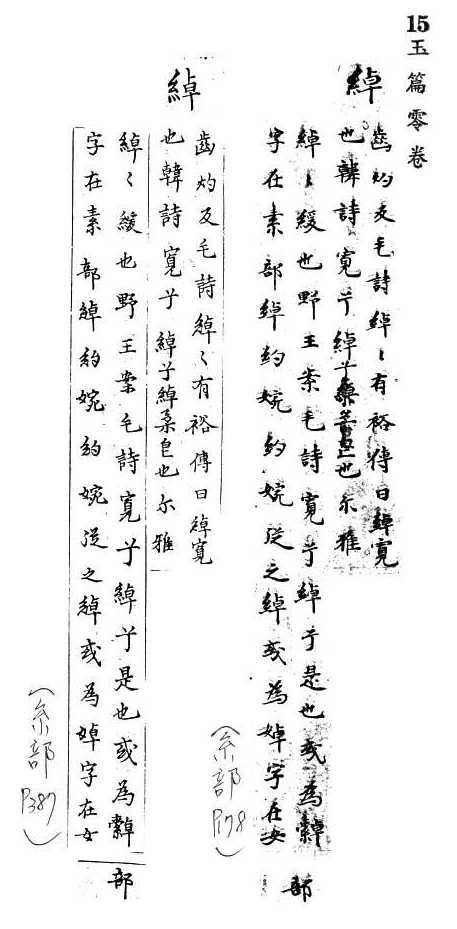 15玉篇零卷
綽
齒灼反毛詩綽〻有裕傳曰綽寬
也韓詩寬兮綽兮綽柔皃也尓雅
綽〻緩也野王案毛詩寬兮綽兮是也或為繛
字在素部綽約婉約婉從之綽或為婥字在女
部
(糸部P178)
綽
齒灼反毛詩綽〻有裕傳曰綽寬
也韓詩寬兮綽兮綽柔皃也尓雅
綽〻緩也野王案毛詩寬兮綽兮是也或為繛
字在素部綽約婉約婉從之綽或為婥字在女
部
(糸部P387)